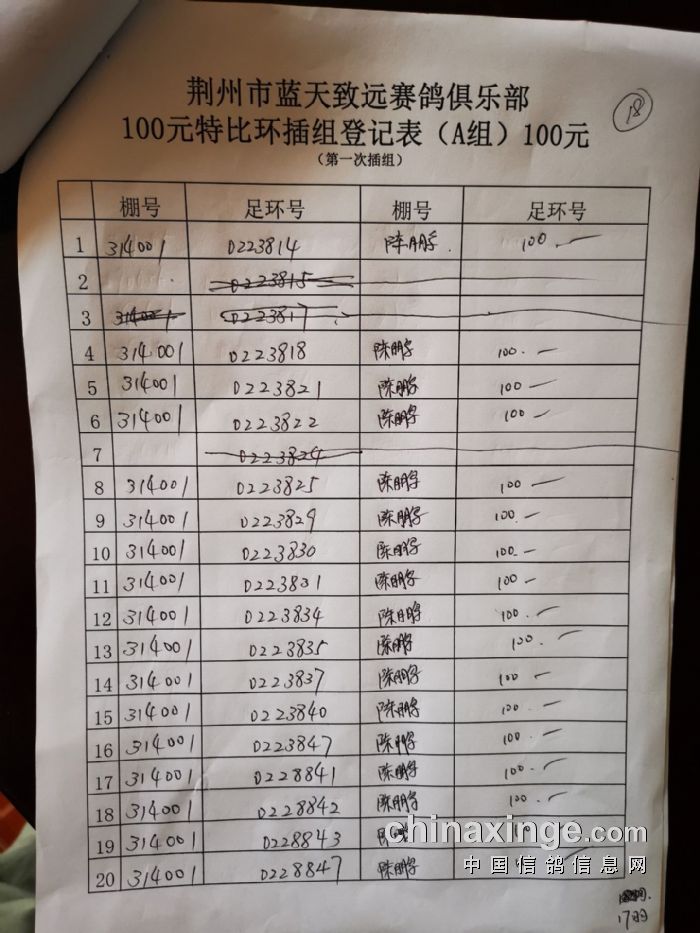 荆州市蓝天致远赛鸽俱乐部
18
100元特比环插组登记表（A组）100元
（第一次插组）
棚号 足环号 棚号 足环号
1 314001 0223814 陈鹏 100.—
2 0223815
3 314001 0223817
4 314001 0223818 陈鹏 100.—
5 314001 0223821 陈鹏 100 —
6 314001 0223822 陈鹏 100 —
7 0223824
8 314001 0223825 陈鹏 100 —
9 314001 0223829 陈鹏 100. —
10 314001 0223830 陈鹏 100.—
11 314001 0223831 陈鹏 100 —
12 314001 0223834 陈鹏 100.—
13 314001 0223835 陈鹏 100.—
14 314001 0223837 陈鹏 100 —
15 314001 0223840 陈鹏 100.—
16 314001 0223847 陈鹏 100.—
17 314001 0228841 陈鹏 100.—
18 314001 0228842 陈鹏 100.—
19 314001 0228843
chinaxinge.com
20 314001 0228847 陈鹏
中国信鸽信息网
17羽